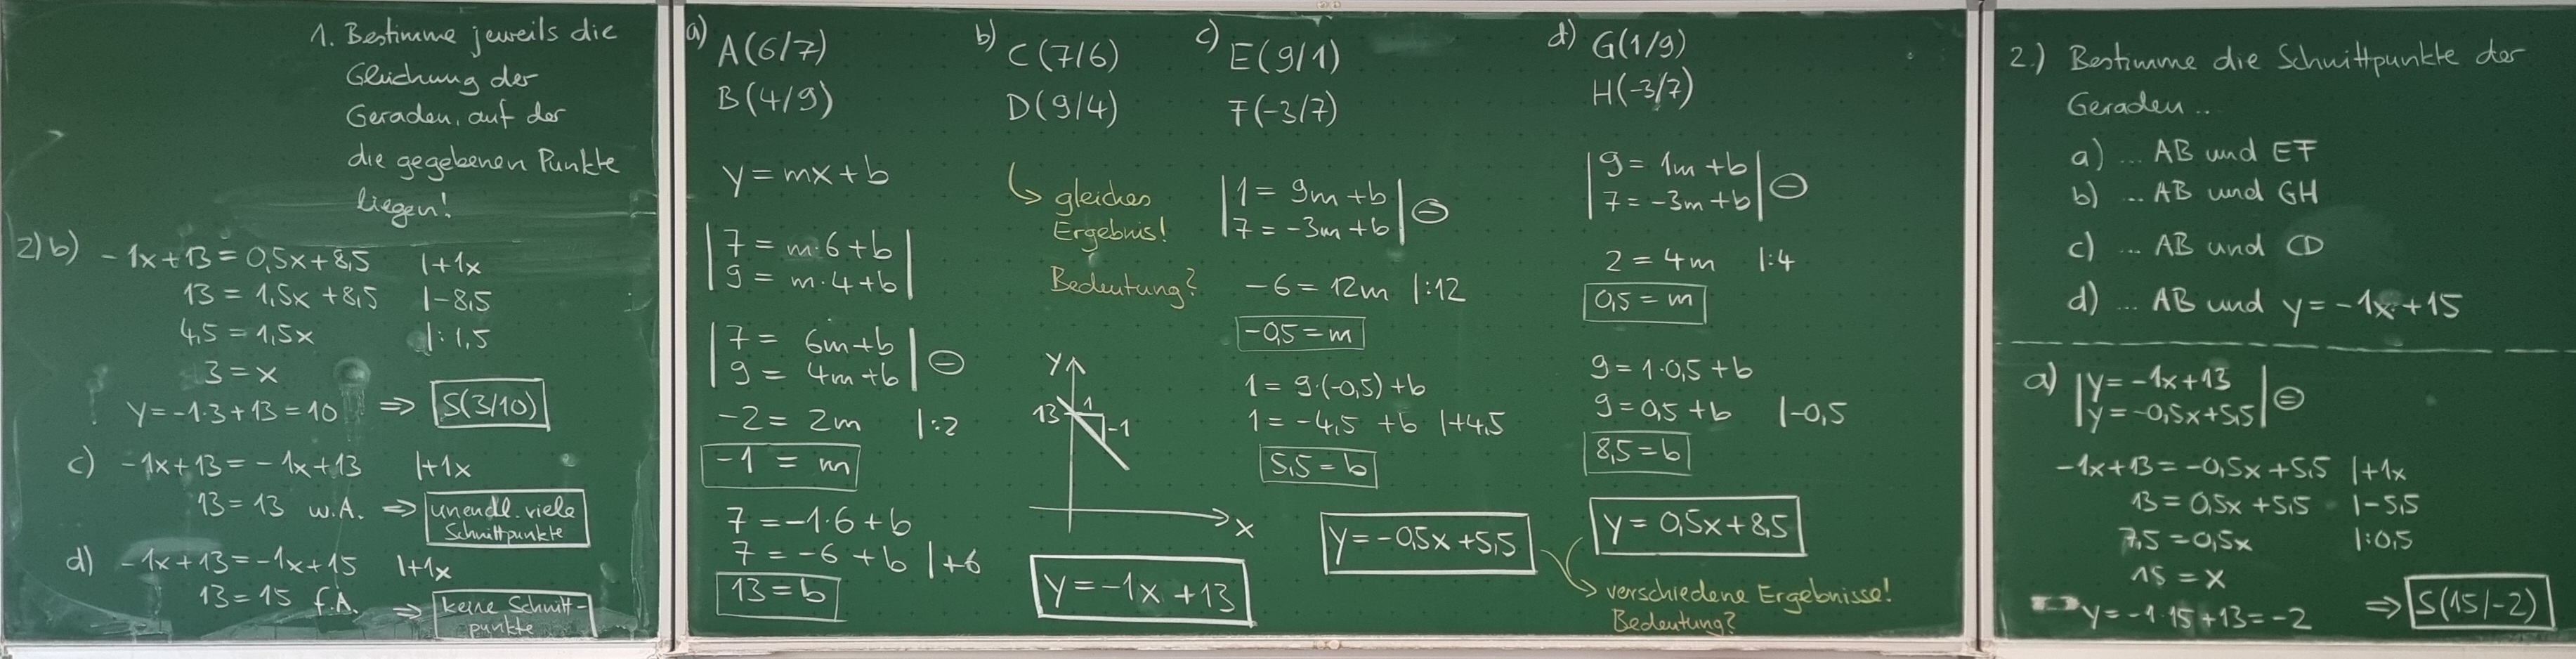 1. Bestimme jeweils die
Gleichung der
Geraden, auf der
die gegebenen Punkte
liegen!
2) b) -1x+13 = 0,5x+8,5 |+1x
13 = 1,5x +8,5 |-8,5
4,5 = 1,5x |:1,5
3 = x
y=-1·3+13=10 => S(3/10)
c) -1x+13=-1x+13 |+1x
13=13 w.A. => unendl. viele
Schnittpunkte
d) -1x+13=-1x+15 |+1x
13=15 f.A. => keine Schnitt-
punkte
a) A(6/7)
B(4/9)
y=mx+b
7 = m·6+b
9 = m·4+b
7 = 6m+b
9 = 4m+b ⊖
-2 = 2m |:2
-1 = m
7 = -1·6+b
7 = -6+b |+6
13=b
b) C(7/6)
D(9/4)
gleiches
Ergebnis!
Bedeutung?
y
13 1
-1
x
y=-1x+13
c) E(9/1)
F(-3/7)
1 = 9m+b
7 = -3m+b ⊖
-6=12m |:12
-0,5=m
1=9·(-0,5)+b
1=-4,5+b |+4,5
5,5=b
y=-0,5x+5,5
d) G(1/9)
H(-3/7)
9 = 1m+b
7 = -3m+b ⊖
2=4m |:4
0,5=m
9=1·0,5+b
9=0,5+b |-0,5
8,5=b
y=0,5x+8,5
verschiedene Ergebnisse!
Bedeutung?
2.) Bestimme die Schnittpunkte der
Geraden..
a) ... AB und EF
b) ... AB und GH
c) ... AB und CD
d) ... AB und y=-1x+15
a) y=-1x+13
y=-0,5x+5,5 ⊖
-1x+13=-0,5x+5,5 |+1x
13=0,5x+5,5 |-5,5
7,5=0,5x |:0,5
15=x
y=-1·15+13=-2 => S(15/-2)